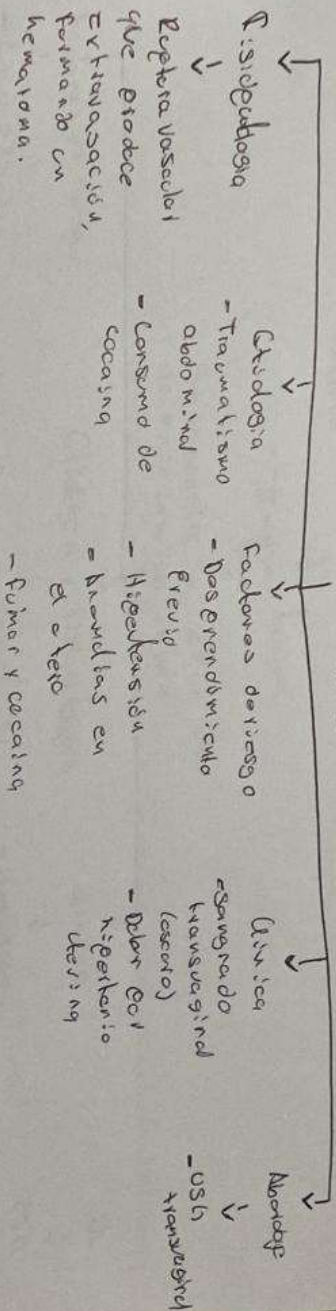 Fisiopatologia
Ruptura vascular
que produce
extravasación,
formando un
hematoma.
Etiologia
- Traumatismo
abdominal
- Consumo de
cocaina
Factores de riesgo
- Desprendimiento
previo
- Hipertensión
- Anomalias en
el utero
- Fumar y cocaina
Clinica
- Sangrado
transvaginal
(oscuro)
- Dolor por
hipertonia
uterina
Abordaje
- USG
transvaginal